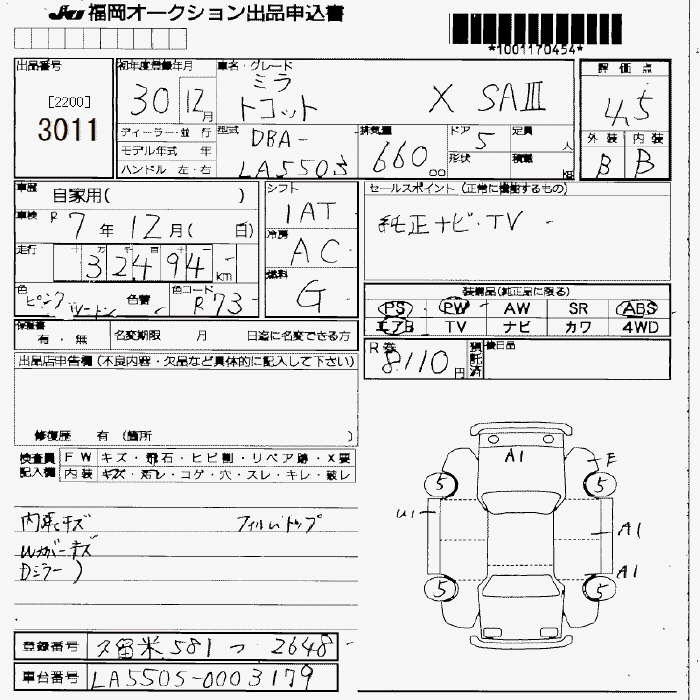 JU 福岡オークション出品申込書
*1001170454*
出品番号
[2200]
3011
初年度登録年月
30 12月
車名・グレード
ミラ
トコット X SAⅢ
評価点
4.5
外装 内装
B B
ディーラー・並行
モデル年式 年
ハンドル 左・右
型式
DBA-
LA550S
排気量
660
cc
ドア
5
形状
定員 人
積載 KG
車歴
自家用( )
車検 R 7年 12月( 日)
走行
十 万 千 百 十 一
32494 km
色
ピンク ツートン
色替
色コード
R73
シフト
IAT
冷房
AC
燃料
G
セールスポイント(正常に機能するもの)
純正ナビ・TV
装備品(純正品に限る)
PS PW AW SR ABS
エアB TV ナビ カワ 4WD
保証書
有・無
名変期限 月 日迄に名変できる方
R券
8110円
預託済
後日品
出品店申告欄(不良内容・欠品など具体的に記入して下さい)
修復歴 有(箇所 )
検査員記入欄
FW キズ・飛石・ヒビ割・リペア跡・X要
内装 キズ・汚レ・コゲ・穴・スレ・キレ・破レ
内装キズ フィルムトップ
Wカバーキズ
Dミラー 〃
A1
E
5
5
U1
A1
A1
5
5
登録番号 久留米 581 つ 2648
車台番号 LA550S-0003179